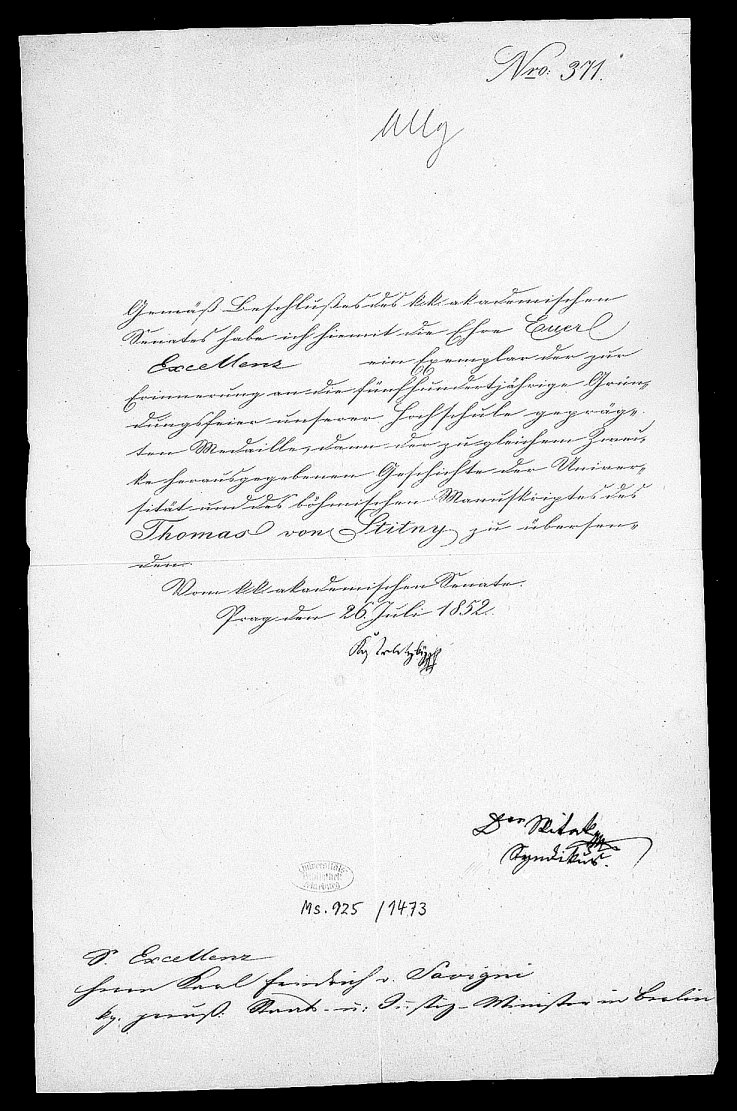 Nro: 371.
Allg
Gemäß Beschlußes des k.k. akademischen
Senates habe ich hiemit die Ehre Euer
Excellenz ein Exemplar der zur
Erinnerung an die fünfhundertjährige Grün=
dungsfeier unserer Hochschule gepräg=
ten Medaille, dann der zu gleichem Zwe=
ke herausgegebenen Geschichte der Univer=
sität und des böhmischen Manuskriptes des
Thomas von Stitny zu übersen=
den.
Vom k.k. akademischen Senate.
Prag den 26. Juli 1852.
Syndikus.
Ms. 925 /1473
Sr. Excellenz
Herrn Karl Friedrich v. Savigni
kg. preuß. Staats- u: Justiz-Minister in Berlin